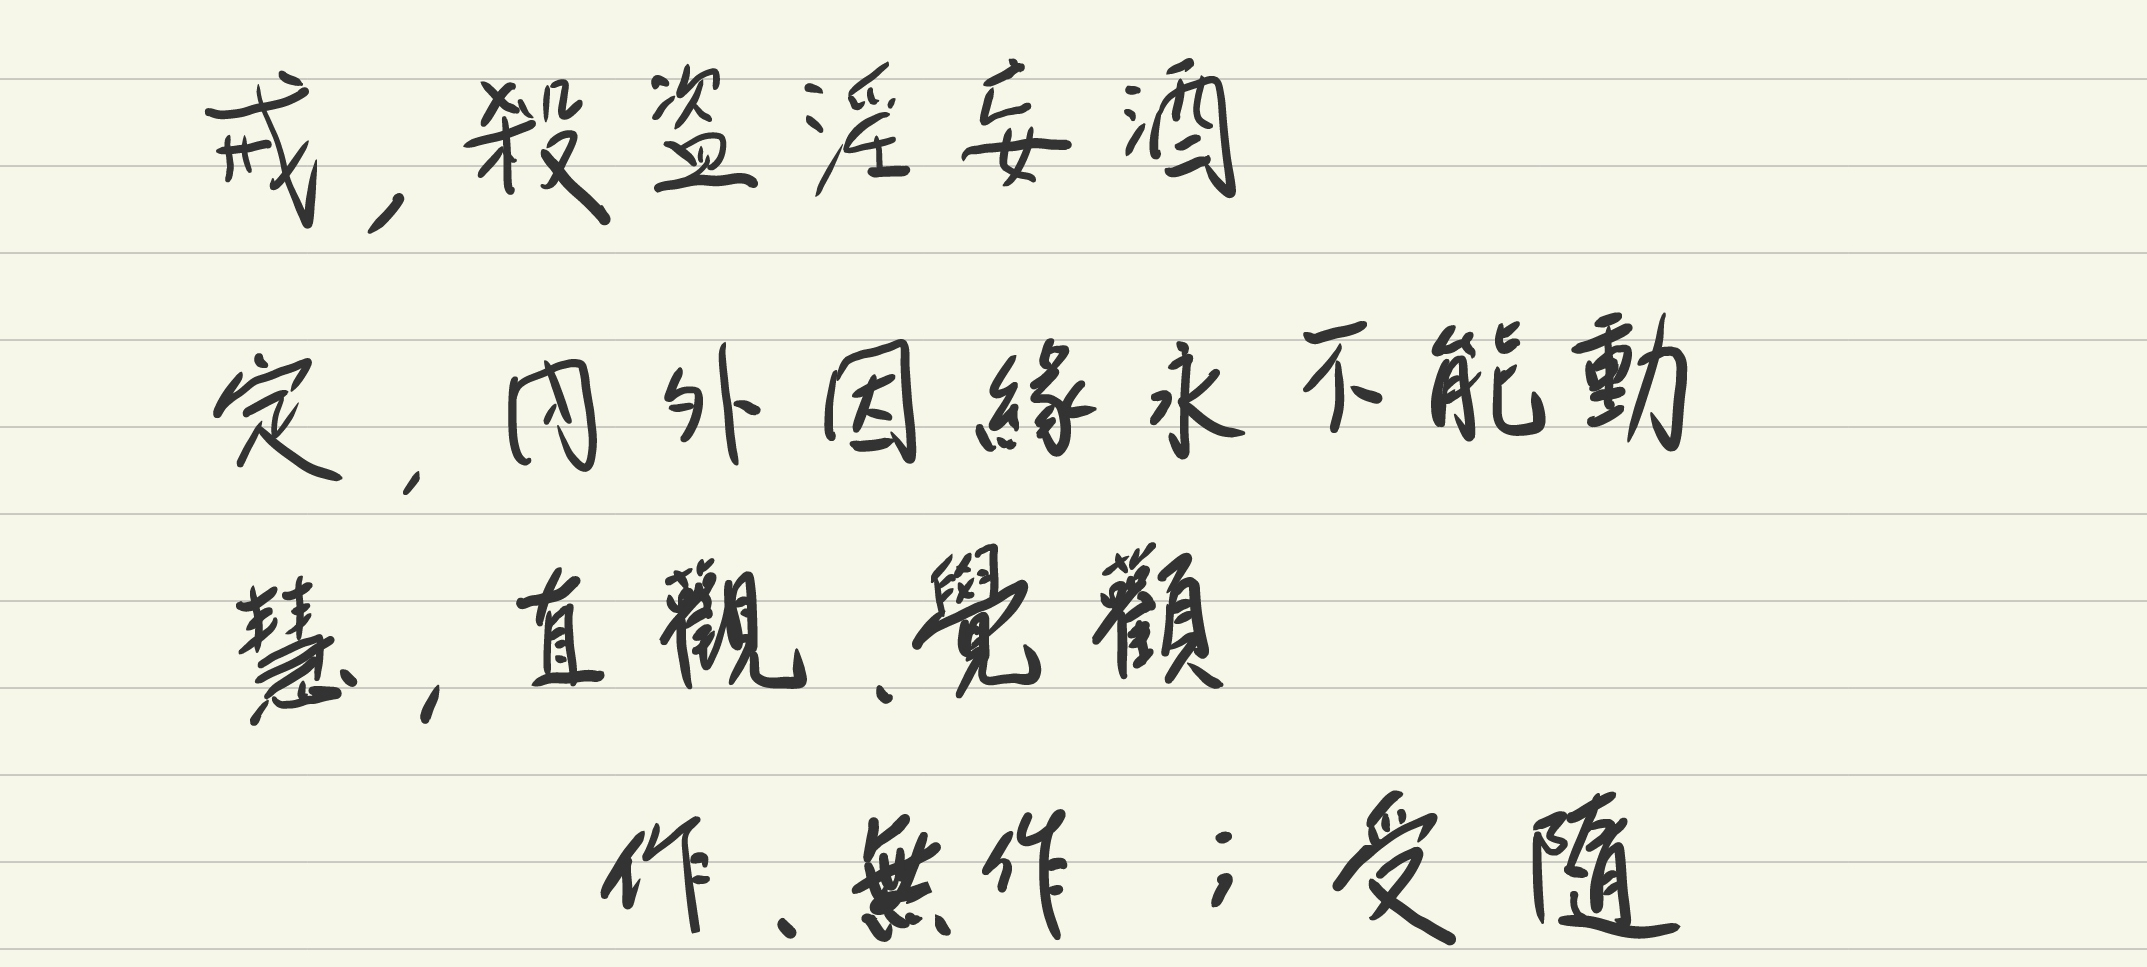 戒，殺盜淫妄酒
定，內外因緣永不能動
慧，直觀、覺觀
作、無作；受隨